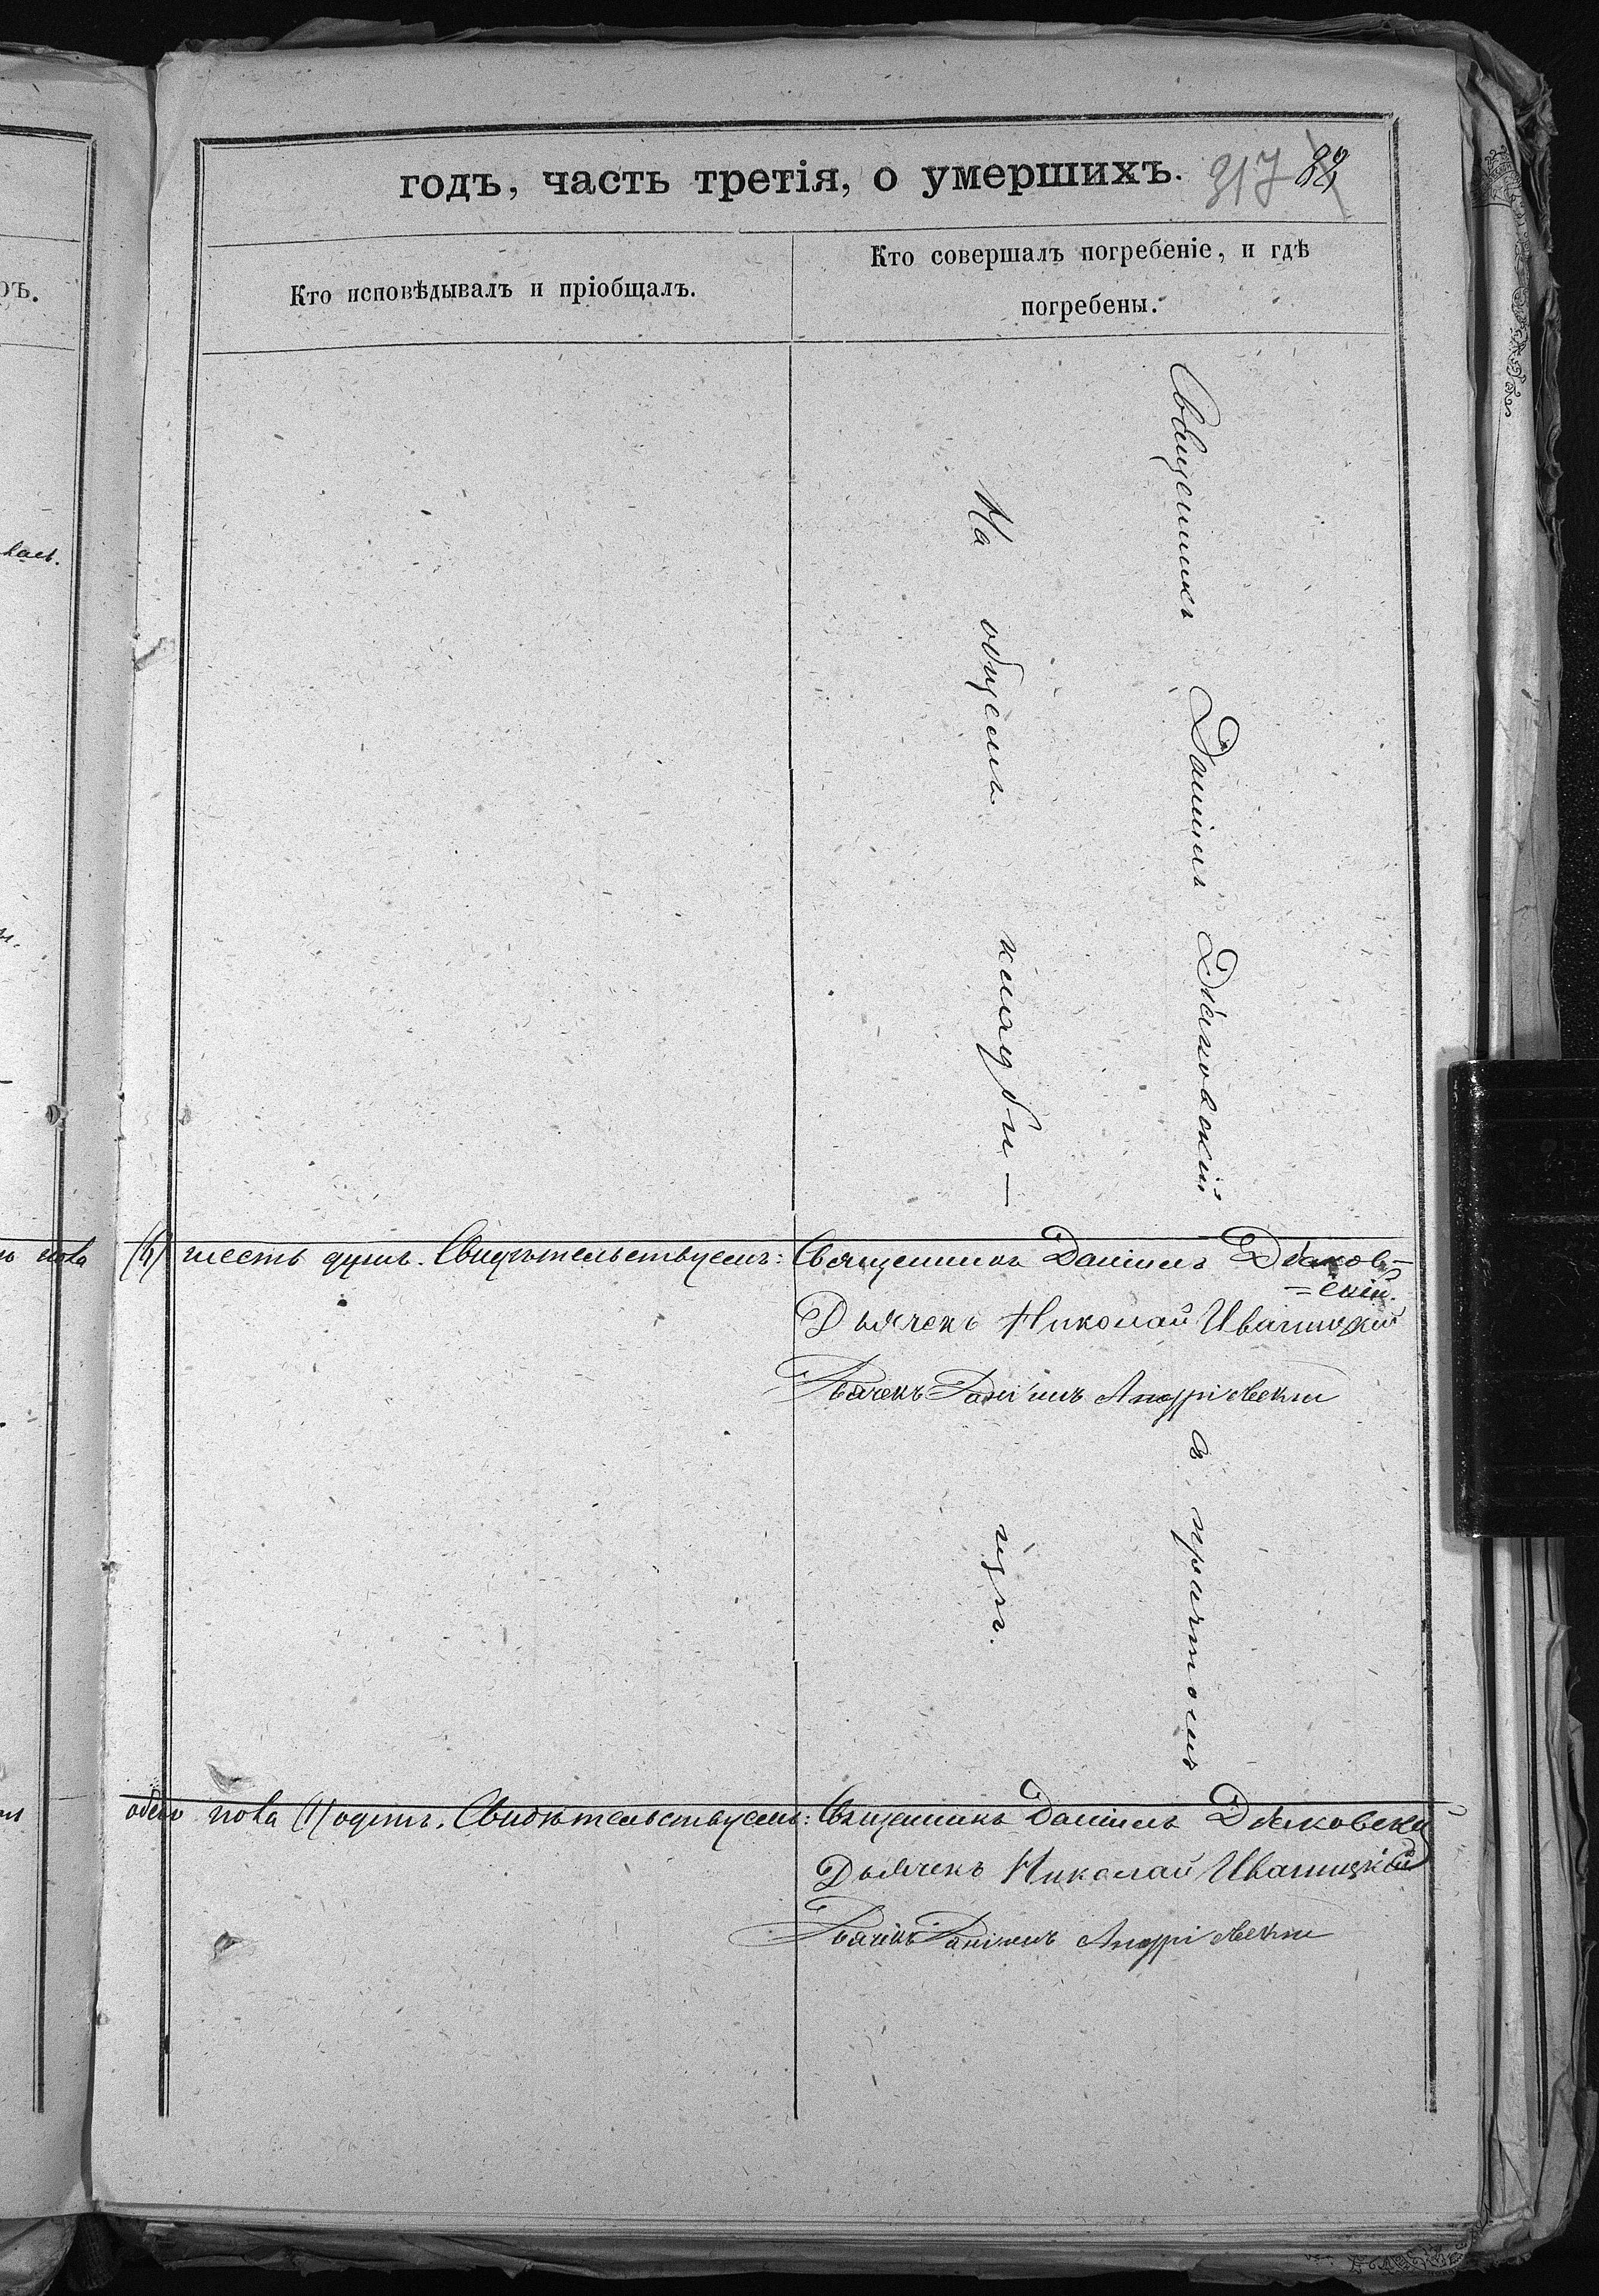 годъ, часть третія, о умершихъ.
317 82
Кто исповѣдывалъ и пріобщалъ.
Кто совершалъ погребеніе, и гдѣ
погребены.
Священникъ Даніилъ Дьяковскій
На общемъ кладби–
шесть душъ. Свидѣтельствуемъ: Священникъ Даніилъ Дьяков–
=скій.
Дьячекъ Николай Иваницкій
Дьячекъ Даніилъ Андріевскій
съ причтомъ
щѣ.
обего пола (1) одинъ. Свидѣтельствуемъ: Священникъ Даніилъ Дьяковскій
Дьячекъ Николай Иваницкій
Дьячекъ Даніилъ Андріевскій